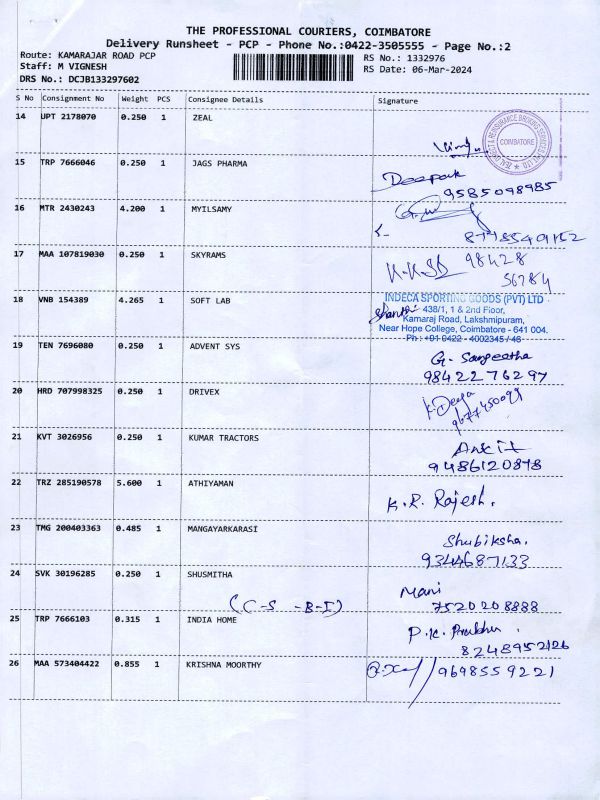 THE PROFESSIONAL COURIERS, COIMBATORE
Delivery Runsheet - PCP - Phone No.:0422-3505555 - Page No.:2
Route: KAMARAJAR ROAD PCP
Staff: M VIGNESH
DRS No.: DCJB133297602
RS No.: 1332976
RS Date: 06-Mar-2024
S No Consignment No Weight PCS Consignee Details Signature
14 UPT 2178070 0.250 1 ZEAL
COIMBATORE
15 TRP 7666046 0.250 1 JAGS PHARMA
Deepak
9585098985
16 MTR 2430243 4.200 1 MYILSAMY
17 MAA 107819030 0.250 1 SKYRAMS
98428
56784
18 VNB 154389 4.265 1 SOFT LAB
INDECA SPORTING GOODS (PVT) LTD
438/1, 1 & 2nd Floor,
Kamaraj Road, Lakshmipuram,
Near Hope College, Coimbatore - 641 004.
Ph : +91 0422 - 4002345 / 46
19 TEN 7696080 0.250 1 ADVENT SYS
G. Sangeetha
98422 76297
20 HRD 707998325 0.250 1 DRIVEX
K. Deepa
21 KVT 3026956 0.250 1 KUMAR TRACTORS
Ankit
9486120878
22 TRZ 285190578 5.600 1 ATHIYAMAN
K. R. Rajesh.
23 TMG 200403363 0.485 1 MANGAYARKARASI
Shubiksha.
9344687133
24 SVK 30196285 0.250 1 SHUSMITHA
(C-S -B-I)
Mani
7520208888
25 TRP 7666103 0.315 1 INDIA HOME
P.K. Prabhu
8248952126
26 MAA 573404422 0.855 1 KRISHNA MOORTHY
9698559221